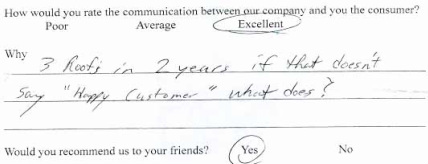 How would you rate the communication between our company and you the consumer?
Poor Average Excellent
Why 3 Roofs in 2 years if that doesn't
Say "Happy Customer" what does?
Would you recommend us to your friends? Yes No